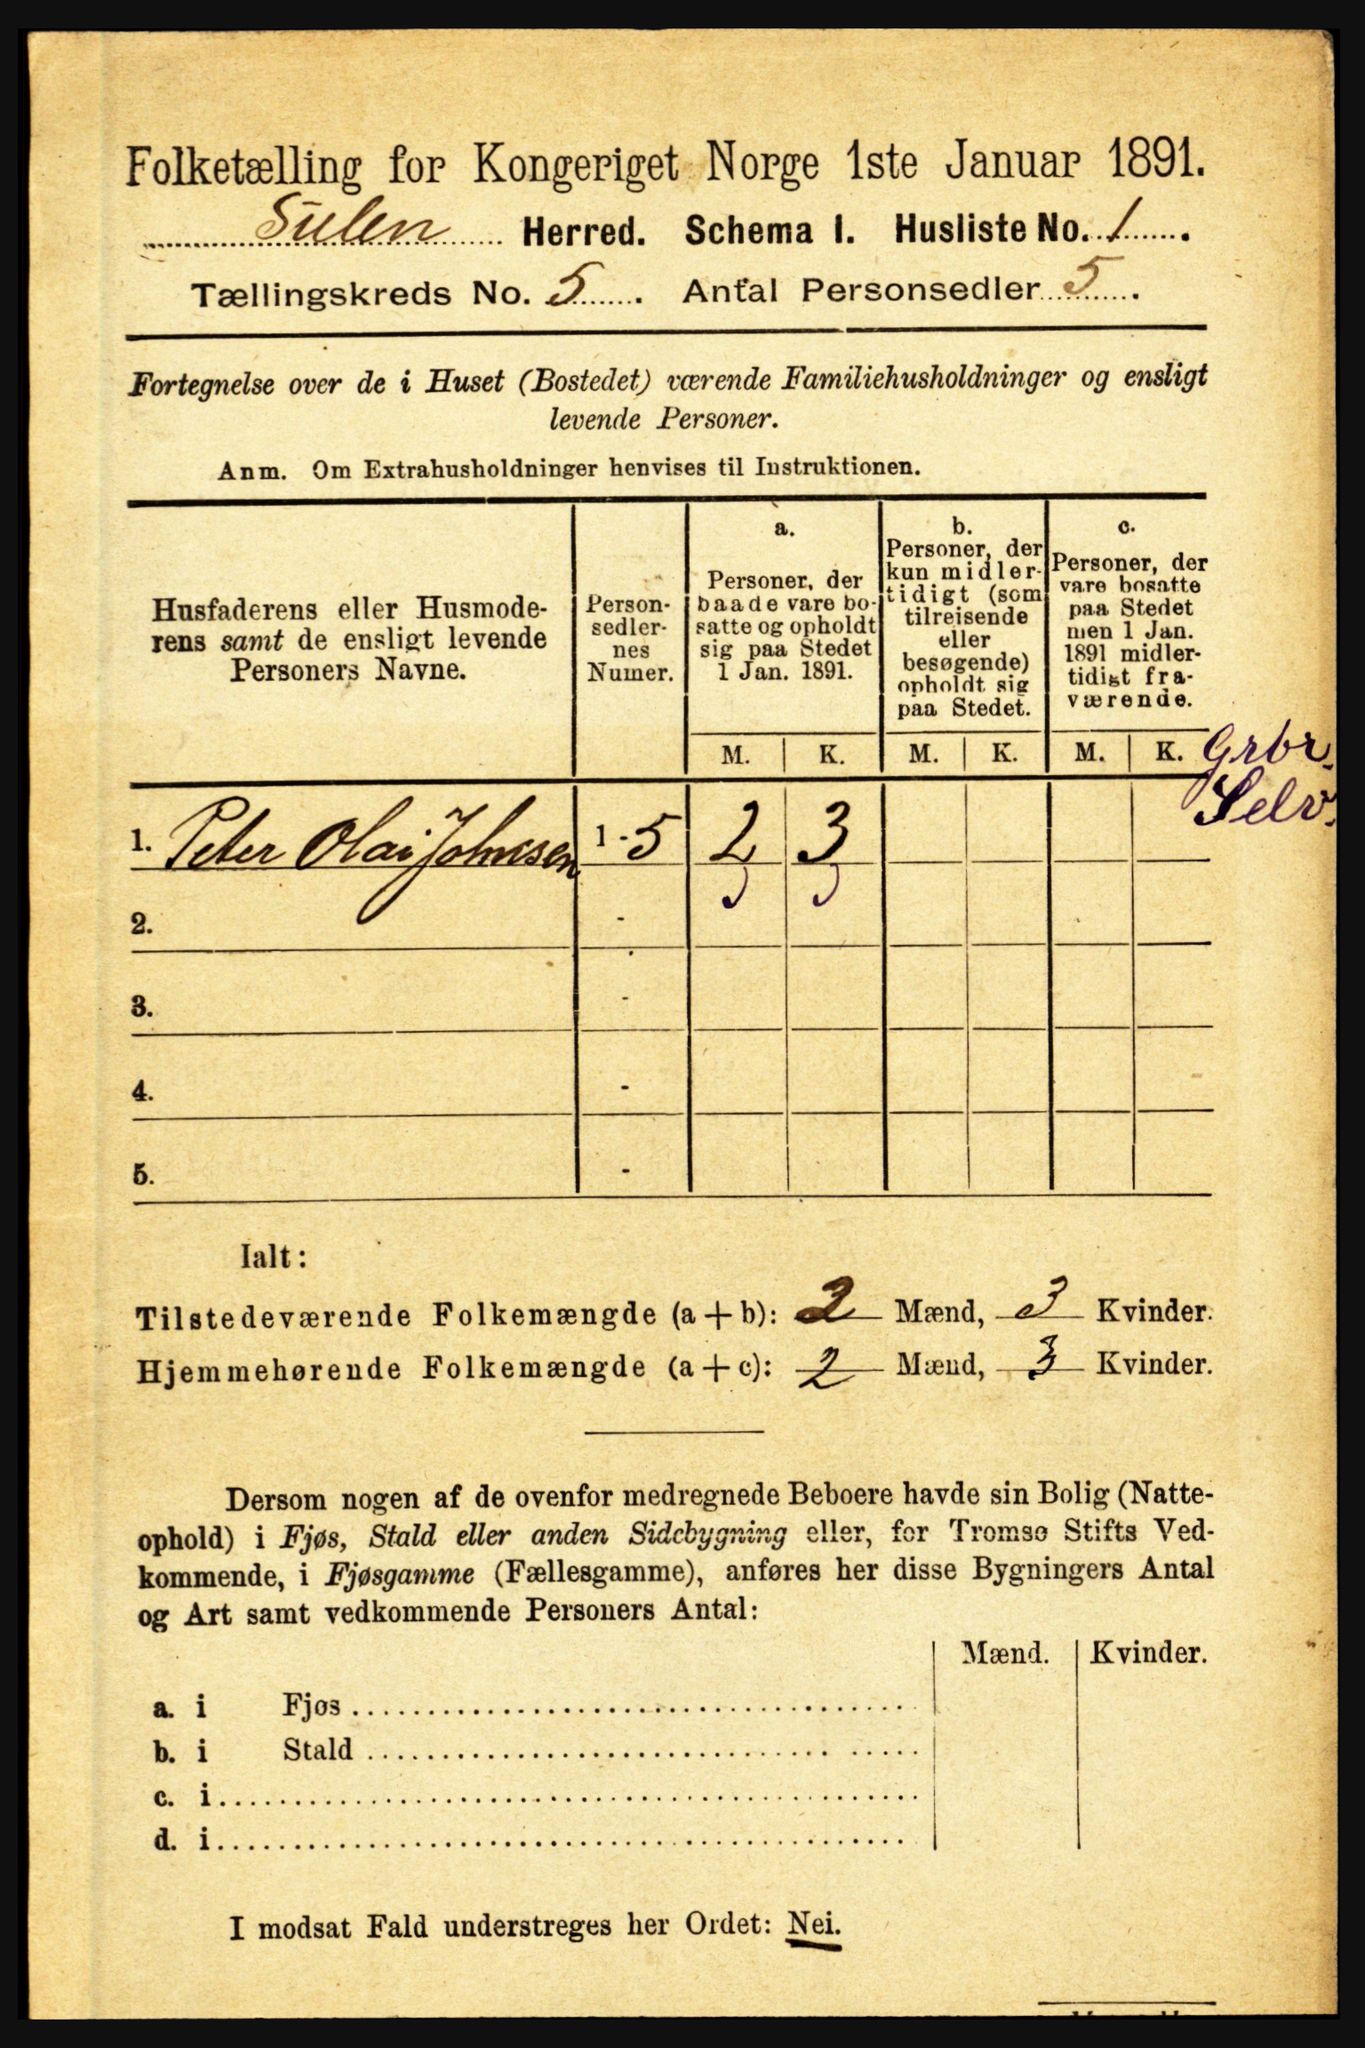 Folketælling for Kongeriget Norge 1ste Januar 1891.
Sulen Herred. Schema I. Husliste No. 1.
Tællingskreds No. 5. Antal Personsedler 5.
Fortegnelse over de i Huset (Bostedet) værende Familiehusholdninger og ensligt
levende Personer.
Anm. Om Extrahusholdninger henvises til Instruktionen.
Husfaderens eller Husmode-
rens samt de ensligt levende
Personers Navne.
Person-
sedler-
nes
Numer.
a.
Personer, der
baade vare bo-
satte og opholdt
sig paa Stedet
1 Jan. 1891.
b.
Personer, der
kun midler-
tidigt (som
tilreisende
eller
besøgende)
opholdt sig
paa Stedet.
c.
Personer, der
vare bosatte
paa Stedet
men 1 Jan.
1891 midler-
tidigt fra-
værende.
M. K. M. K. M. K. Grbr.
Selv.
1. Peter Olai Johnsen 1-5 2 3
2. -
3. -
4. -
5. -
Ialt:
Tilstedeværende Folkemængde (a+b): 2 Mænd, 3 Kvinder.
Hjemmehørende Folkemængde (a+c): 2 Mænd, 3 Kvinder.
Dersom nogen af de ovenfor medregnede Beboere havde sin Bolig (Natte-
ophold) i Fjøs, Stald eller anden Sidebygning eller, for Tromsø Stifts Ved-
kommende, i Fjøsgamme (Fællesgamme), anføres her disse Bygningers Antal
og Art samt vedkommende Personers Antal:
Mænd. Kvinder.
a. i Fjøs
b. i Stald
c. i
d. i
I modsat Fald understreges her Ordet: Nei.